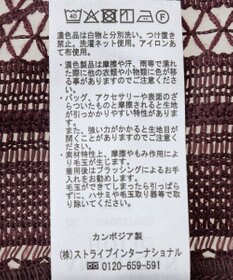 40
濃色品は白物と分別洗い。つけ置き
禁止。洗濯ネット使用。アイロンあ
て布使用。
・濃色製品は摩擦や汗、雨等で濡れ
た際に他の衣類や小物類に色が移
る事がありますので、お取り扱い
にご注意ください。
・バッグ、アクセサリーや表面のざ
らついたものとの摩擦すると生地目
が引っかかりやすい特性がありま
す。
また、強い力がかかると生地が引
き裂かれることがありますのでご
注意ください。
・素材特性上、摩擦やもみ作用によ
り毛玉が生じます。
着用後はブラッシングによるお手
入れをお勧めします。
毛玉ができてしまったら引っぱら
ずに、ハサミや毛玉取り器等で取
り除いてください。
カンボジア製
(株)ストライプインターナショナル
0120-659-591